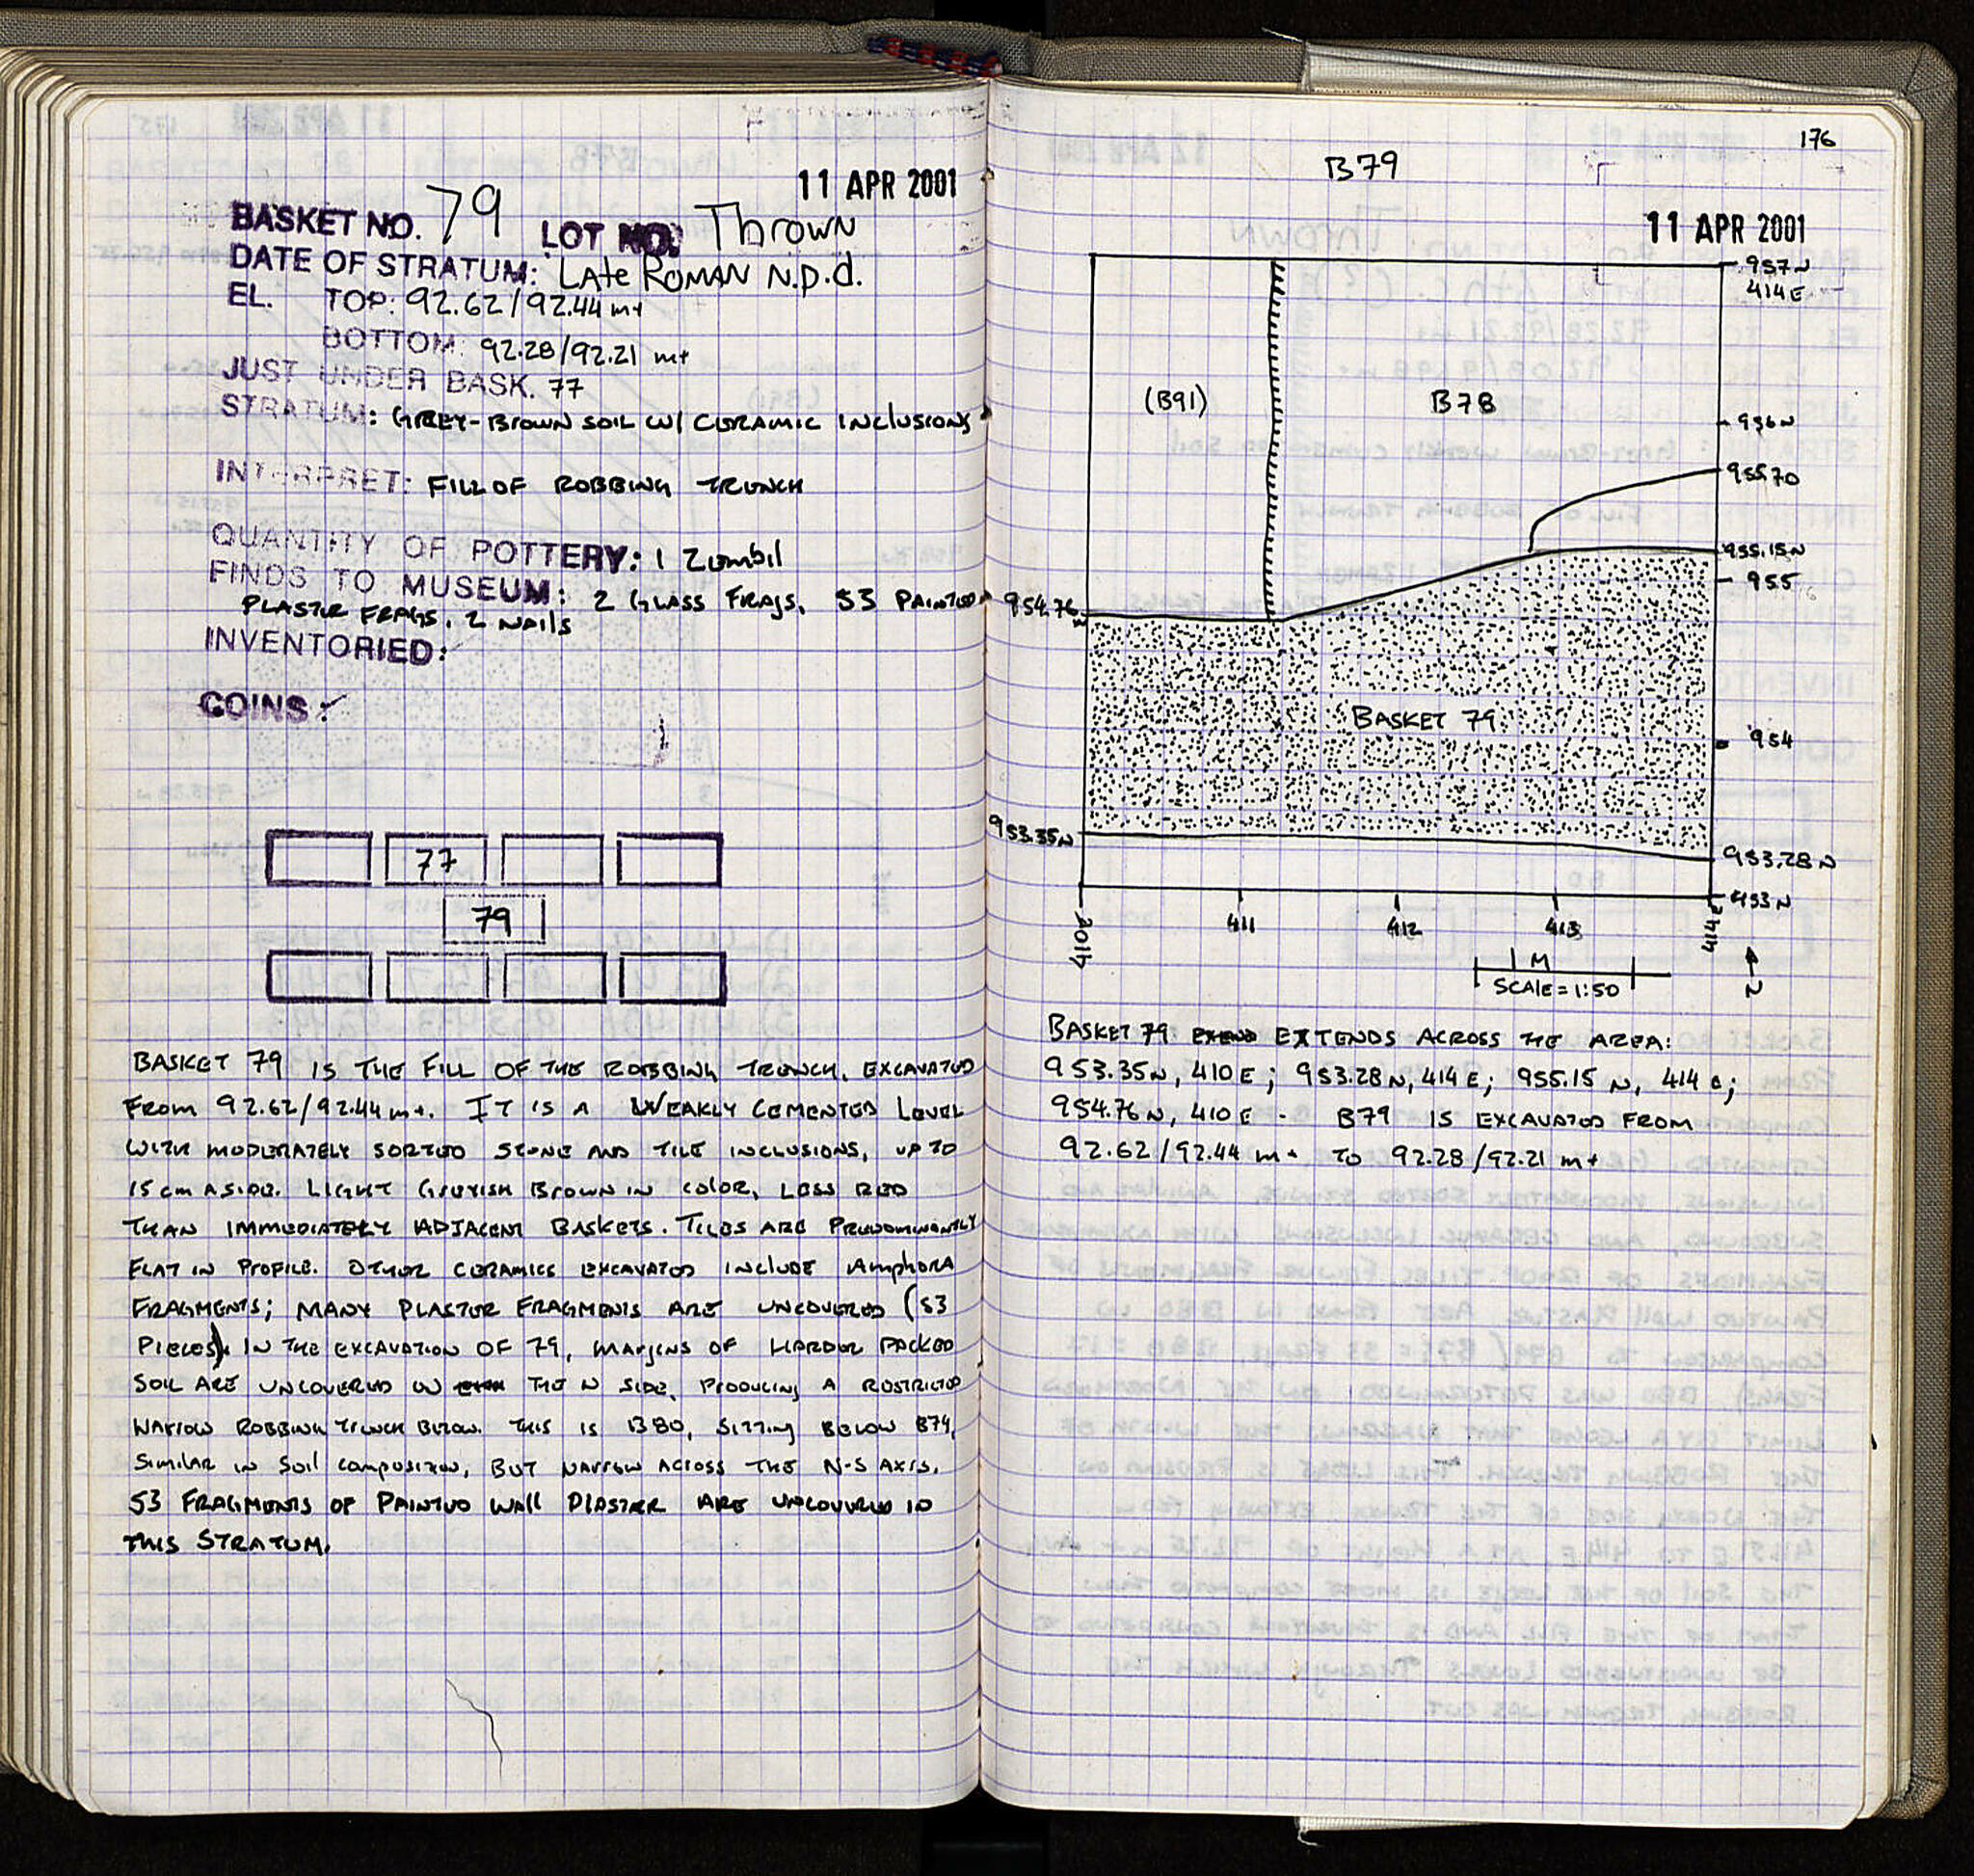 11 APR 2001
BASKET NO. 79 LOT NO. Thrown
DATE OF STRATUM: Late Roman N.P.d.
EL. TOP: 92.62/92.44 m+
BOTTOM: 92.28/92.21 m+
JUST UNDER BASK. 77
STRATUM: GREY-BROWN SOIL W/ CERAMIC INCLUSIONS
INTERPRET: FILL OF ROBBING TRENCH
QUANTITY OF POTTERY: 1 Zembil
FINDS TO MUSEUM: 2 GLASS FRAGS, 53 PAINTED
PLASTER FRAGS, 2 NAILS
INVENTORIED:
COINS:
77
79
BASKET 79 IS THE FILL OF THE ROBBING TRENCH, EXCAVATED
FROM 92.62/92.44 m+. IT IS A WEAKLY CEMENTED LEVEL
WITH MODERATELY SORTED STONE AND TILE INCLUSIONS, UP TO
15 cm A SIDE. LIGHT GREYISH BROWN IN COLOR, LESS RED
THAN IMMEDIATELY ADJACENT BASKETS. TILES ARE PREDOMINANTLY
FLAT IN PROFILE. OTHER CERAMICS EXCAVATED INCLUDE AMPHORA
FRAGMENTS; MANY PLASTER FRAGMENTS ARE UNCOVERED (53
PIECES). IN THE EXCAVATION OF 79, MARGINS OF HARDER PACKED
SOIL ARE UNCOVERED ON THE N SIDE, PRODUCING A RESTRICTED
NARROW ROBBING TRENCH BELOW. THIS IS B80, SITTING BELOW B79,
SIMILAR IN SOIL COMPOSITION, BUT NARROW ACROSS THE N-S AXIS.
53 FRAGMENTS OF PAINTED WALL PLASTER ARE UNCOVERED IN
THIS STRATUM.
176
B79
11 APR 2001
957 N
414 E
(B91)
B78
956 N
955.70
955.15 N
955
954.76 N
BASKET 79
954
953.35 N
953.28 N
953 N
410 E
411
412
413
414 E
1 M
SCALE = 1:50
N
BASKET 79 EXTENDS ACROSS THE AREA:
953.35 N, 410 E; 953.28 N, 414 E; 955.15 N, 414 E;
954.76 N, 410 E. B79 IS EXCAVATED FROM
92.62/92.44 m+ TO 92.28/92.21 m+